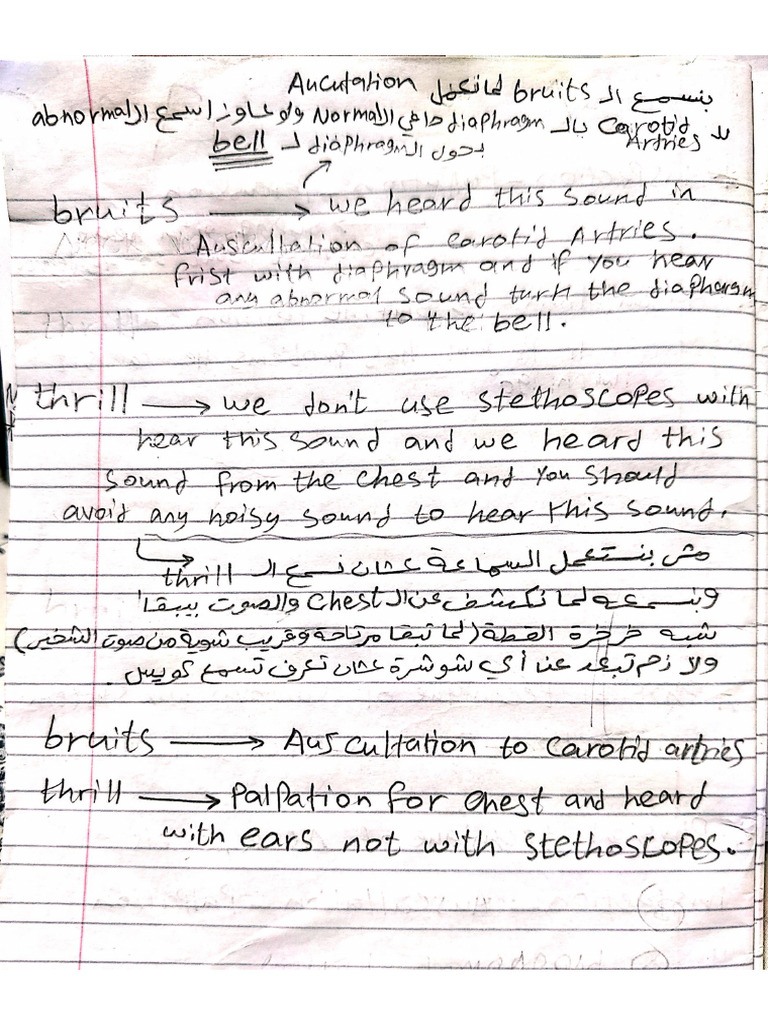 بنسمع الـ bruits لما نعمل Aucutation
لـ Carotid Artries بالـ diaphragm دا في الـ Normal ولو عاوز اسمع الـ abnormal
بحول الـ diaphragm لـ bell
bruits → we heard this sound in
Auscultation of carotid Artries.
frist with diaphragm and if you hear
any abnormal sound turn the diaphragm
to the bell.
thrill → we don't use stethoscopes with
hear this sound and we heard this
sound from the chest and you should
avoid any noisy sound to hear this sound.
مش بنستعمل السماعة عشان نسمع الـ thrill
وبنسمعه لما نكشف عن الـ chest والصوت بيبقا
شبه خرخرة القطة (لما تبقا مرتاحة وقريب شوية من صوت الشخير)
ولازم تبعد عن أي شوشرة عشان تعرف تسمع كويس.
bruits → Auscultation to carotid artries
thrill → Palpation for chest and heard
with ears not with stethoscopes.